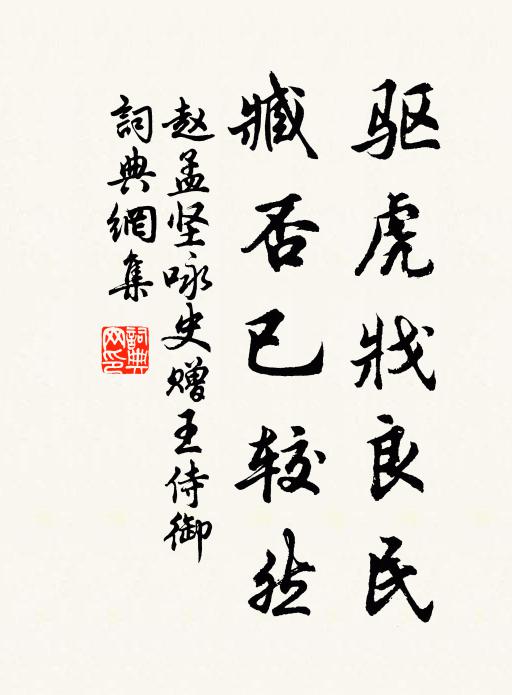 驱虎戕良民
臧否已较然
赵孟坚咏史赠王侍御
詞典網集
詞典網印